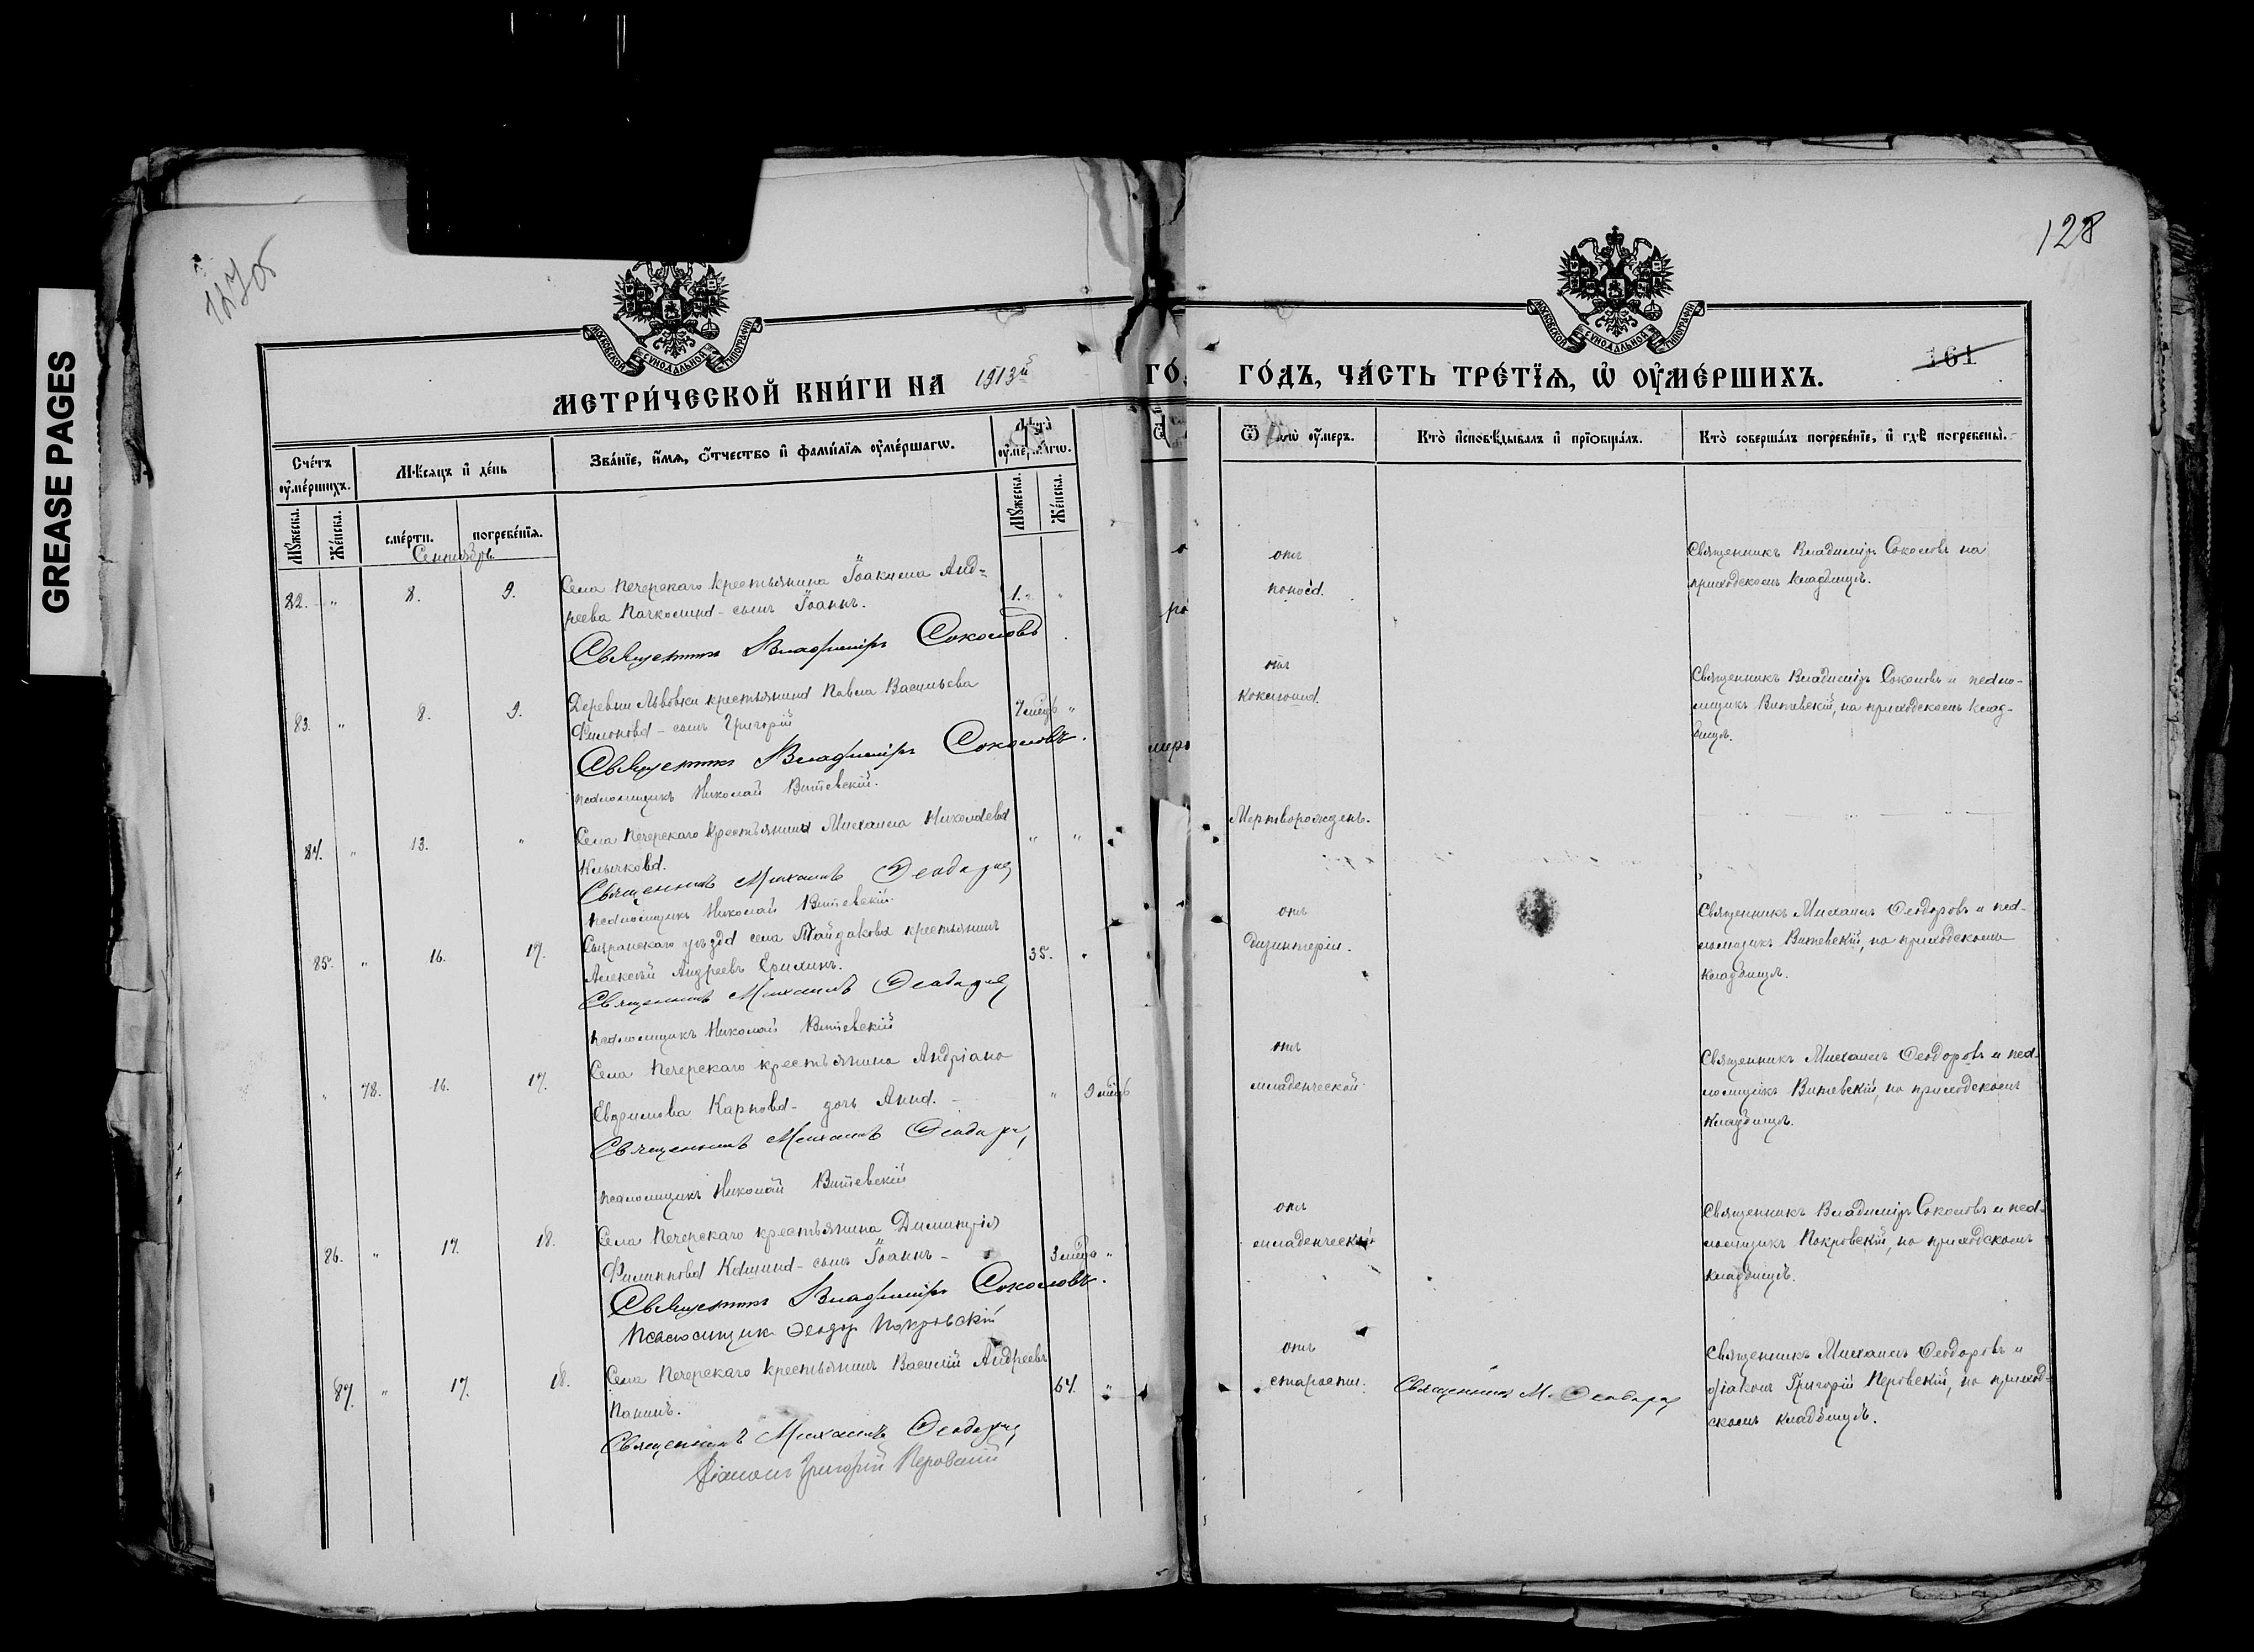 GREASE PAGES
127об
128
161
МОСКОВСКОЙ СѴНОДАЛЬНОЙ ТИПОГРАФІИ
МОСКОВСКОЙ СѴНОДАЛЬНОЙ ТИПОГРАФІИ
МЕТРИ́ЧЕСКОЙ КНИ́ГИ НА 1913й
ГО́ДЪ, ЧА́СТЬ ТРЕ́ТЇѦ, Ѡ҆ ОУ҆МЕ́РШИХЪ.
Сче́тъ оу҆ме́ршихъ.
Мѣсяцъ и҆ де́нь
Зва́нїе, и҆́мѧ, ѻ҆́тчество и҆ фами́лїѧ оу҆ме́ршагѡ.
Лѣ́та оу҆ме́ршагѡ.
Мꙋ́жеска.
Же́нска.
сме́рти.
погребе́нїѧ.
Мꙋ́жеска.
Же́нска.
Ѿ чегѡ̀ оу҆́меръ.
Кто̀ и҆сповѣ́дывалъ и҆ прїѡбща́лъ.
Кто̀ соверша́лъ погребе́нїе, и҆ гдѣ̀ погребены̀.
Сентябрь
82. " 8. 9.
Села Печерскаго крестьянина Іоакима Анд-
реева Пачколина - сынъ Іоаннъ.
1. "
Священникъ Владиміръ Соколовъ
отъ
поноса.
Священникъ Владиміръ Соколовъ на
приходскомъ кладбищѣ.
83. " 8. 9.
Деревни Львовки крестьянина Павла Васильева
Филонова - сынъ Григорій
7 мѣсяц. "
Священникъ Владиміръ Соколовъ.
псаломщикъ Николай Витевскій.
отъ
коклюша.
Священникъ Владиміръ Соколовъ и псало-
мщикъ Витевскій, на приходскомъ клад-
бищѣ.
84. " 13. "
Села Печерскаго крестьянина Михаила Николаева
Клычкова.
" "
Священникъ Михаилъ Ѳеодоровъ
псаломщикъ Николай Витевскій.
Мертворожденъ.
85. " 16. 17.
Сызранскаго уѣзда села Майдакова крестьянинъ
Алексѣй Андреевъ Ерилинъ.
35. "
Священникъ Михаилъ Ѳеодоровъ
псаломщикъ Николай Витевскій
отъ
дизинтеріи.
Священникъ Михаилъ Ѳеодоровъ и пса-
ломщикъ Витевскій, на приходскомъ
кладбищѣ.
" 78. 16. 17.
Села Печерскаго крестьянина Андріана
Евфимова Карпова - дочь Анна.
" 9 мѣсяц
Священникъ Михаилъ Ѳеодоровъ
псаломщикъ Николай Витевскій
отъ
младенческой
Священникъ Михаилъ Ѳеодоровъ и пса-
ломщикъ Витевскій, на приходскомъ
кладбищѣ.
86. " 17. 18.
Села Печерскаго крестьянина Димитрія
Филиппова - сынъ Іоаннъ -
3 мѣсяца "
Священникъ Владиміръ Соколовъ.
Псаломщикъ Ѳеодоръ Покровскій
отъ
младенческой
Священникъ Владиміръ Соколовъ и пса-
ломщикъ Покровскій, на приходскомъ
кладбищѣ.
87. " 17. 18.
Села Печерскаго крестьянинъ Василій Андреевъ
Панинъ.
64. "
Священникъ Михаилъ Ѳеодоровъ
Діаконъ Григорій Перовскій
отъ
старости.
Священникъ М. Ѳеодоровъ
Священникъ Михаилъ Ѳеодоровъ и
діаконъ Григорій Перовскій, на приход-
скомъ кладбищѣ.